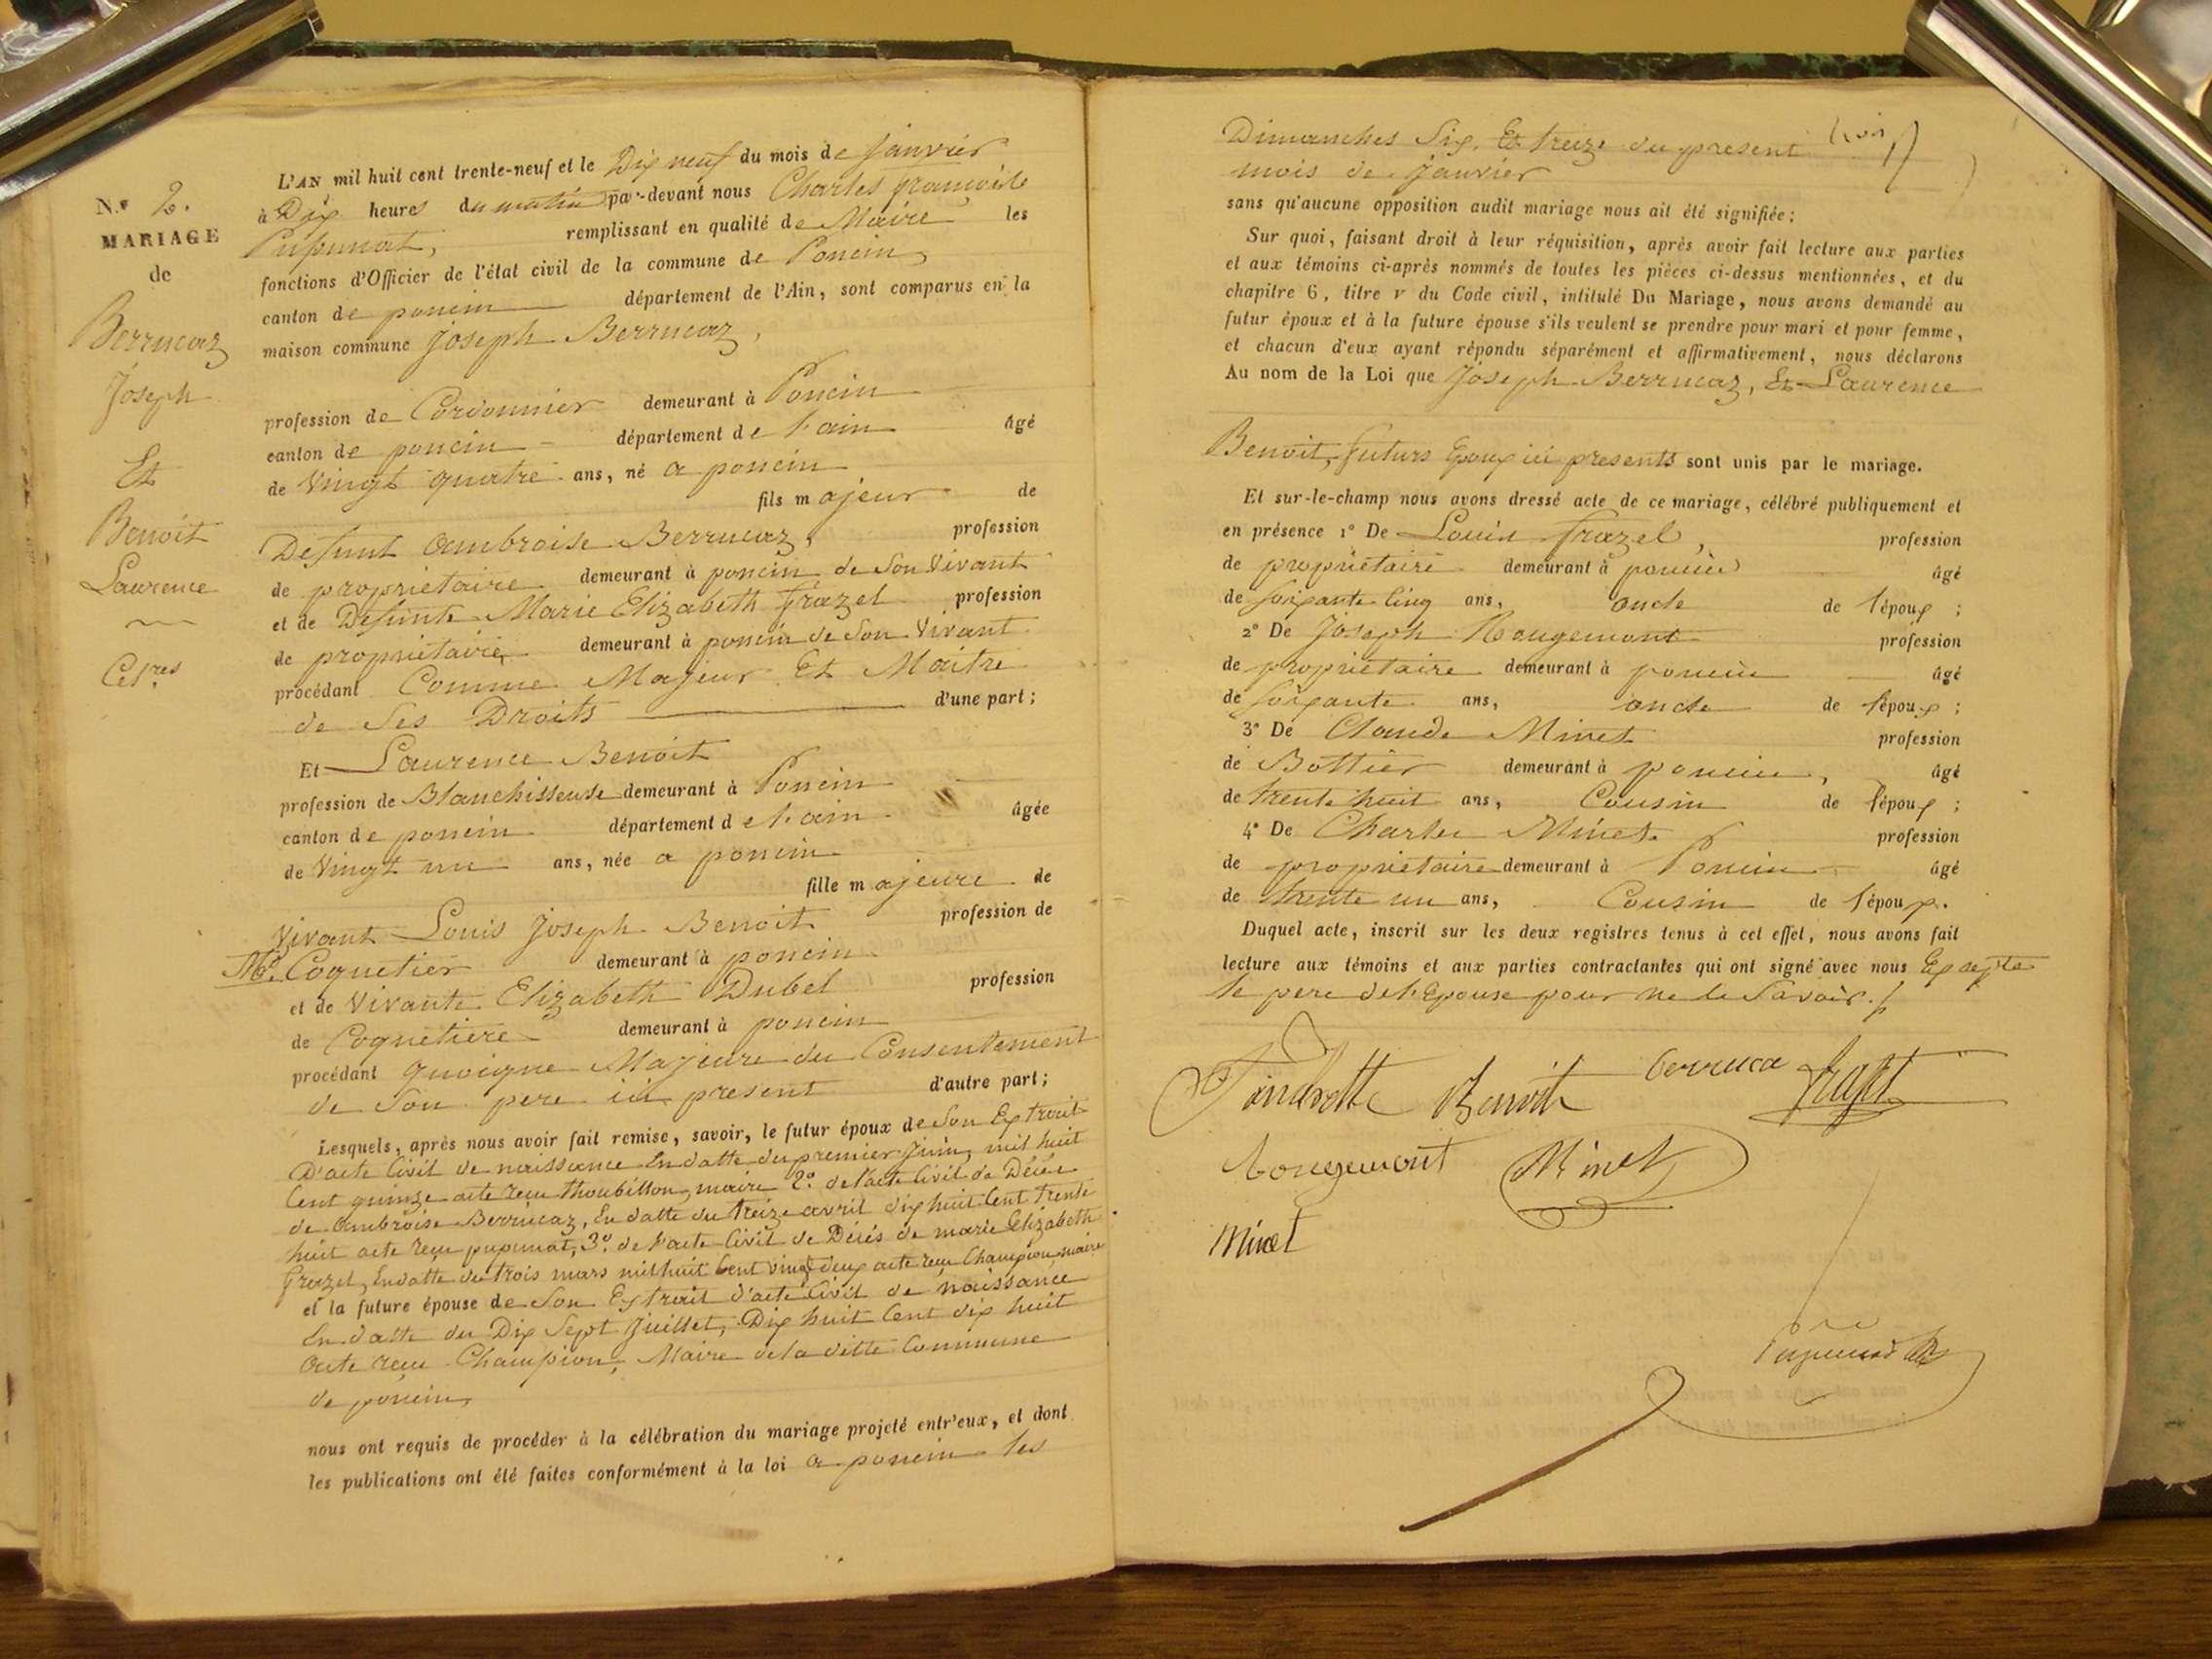 N.o 2.
MARIAGE
de
Berrucaz
Joseph
Et
Benoit
Laurence
Cel.res
L'AN mil huit cent trente-neuf et le Dix neuf du mois de janvier
à Dix heures du matin par-devant nous Charles françois
Pupunat, remplissant en qualité de Maire les
fonctions d'Officier de l'état civil de la commune de Poncin,
canton de poncin département de l'Ain, sont comparus en la
maison commune Joseph Berrucaz,
profession de Cordonnier demeurant à Poncin
canton de poncin département de l'ain âgé
de Vingt quatre ans, né a poncin
fils majeur de
Defunt ambroise Berrucaz, profession
de propriétaire demeurant à poncin de Son Vivant
et de Defunte Marie Elizabeth frazel profession
de propriétaire demeurant à poncin de Son Vivant
procédant Comme Majeur Et Maitre
de Ses Droits d'une part;
Et Laurence Benoit
profession de Blanchisseuse demeurant à Poncin
canton de poncin département de l'ain âgée
de Vingt un ans, née a poncin
fille majeure de
Vivant Louis Joseph Benoit profession de
Md. Coquetier demeurant à poncin
et de Vivante Elizabeth Dubel profession
de Coquetiere demeurant à poncin
procédant quoique Majeure du Consentement
de Son pere ici present d'autre part;
Lesquels, après nous avoir fait remise, savoir, le futur époux de Son Extrait
D'acte Civil de naissance En datte du premier Juin, mil huit
Cent quinze acte reçu thoubillon, maire 2.o de l'acte Civil de Décés
de ambroise Berrucaz, En datte du treize avril dix huit Cent trente
huit acte reçu pupunat, 3.o de l'acte Civil de Décés de marie Elizabeth
frazel, En datte du trois mars mil huit Cent vingt deux acte reçu Champion, maire
et la future épouse de Son Extrait d'acte Civil de naissance
En datte du Dix Sept Juillet, Dix huit Cent dix huit
acte reçu Champion, Maire de la ditte Commune
de poncin,
nous ont requis de procéder à la célébration du mariage projeté entr'eux, et dont
les publications ont été faites conformément à la loi a poncin les
Dimanches Six, Et treize du present
mois de Janvier
sans qu'aucune opposition audit mariage nous ait été signifiée;
Sur quoi, faisant droit à leur réquisition, après avoir fait lecture aux parties
et aux témoins ci-après nommés de toutes les pièces ci-dessus mentionnées, et du
chapitre 6, titre V du Code civil, intitulé Du Mariage, nous avons demandé au
futur époux et à la future épouse s'ils veulent se prendre pour mari et pour femme,
et chacun d'eux ayant répondu séparément et affirmativement, nous déclarons
Au nom de la Loi que Joseph Berrucaz, Et Laurence
Benoit, futurs Epoux ici presents sont unis par le mariage.
Et sur-le-champ nous avons dressé acte de ce mariage, célébré publiquement et
en présence 1o De Louis frazel, profession
de propriétaire demeurant à poncin âgé
de Soixante Cinq ans, oncle de l'époux ;
2o De Joseph Rougemont profession
de propriétaire demeurant à poncin âgé
de Soixante ans, oncle de l'époux ;
3o De Claude Minet profession
de Bottier demeurant à poncin, âgé
de trente huit ans, Cousin de l'époux ;
4o De Charles Minet profession
de propriétaire demeurant à Poncin âgé
de trente un ans, Cousin de l'époux.
Duquel acte, inscrit sur les deux registres tenus à cet effet, nous avons fait
lecture aux témoins et aux parties contractantes qui ont signé avec nous Excepte
le pere de l'Epouse pour ne le Savoir.
Benoit berruca frazet
Rougemont Minet
Minet